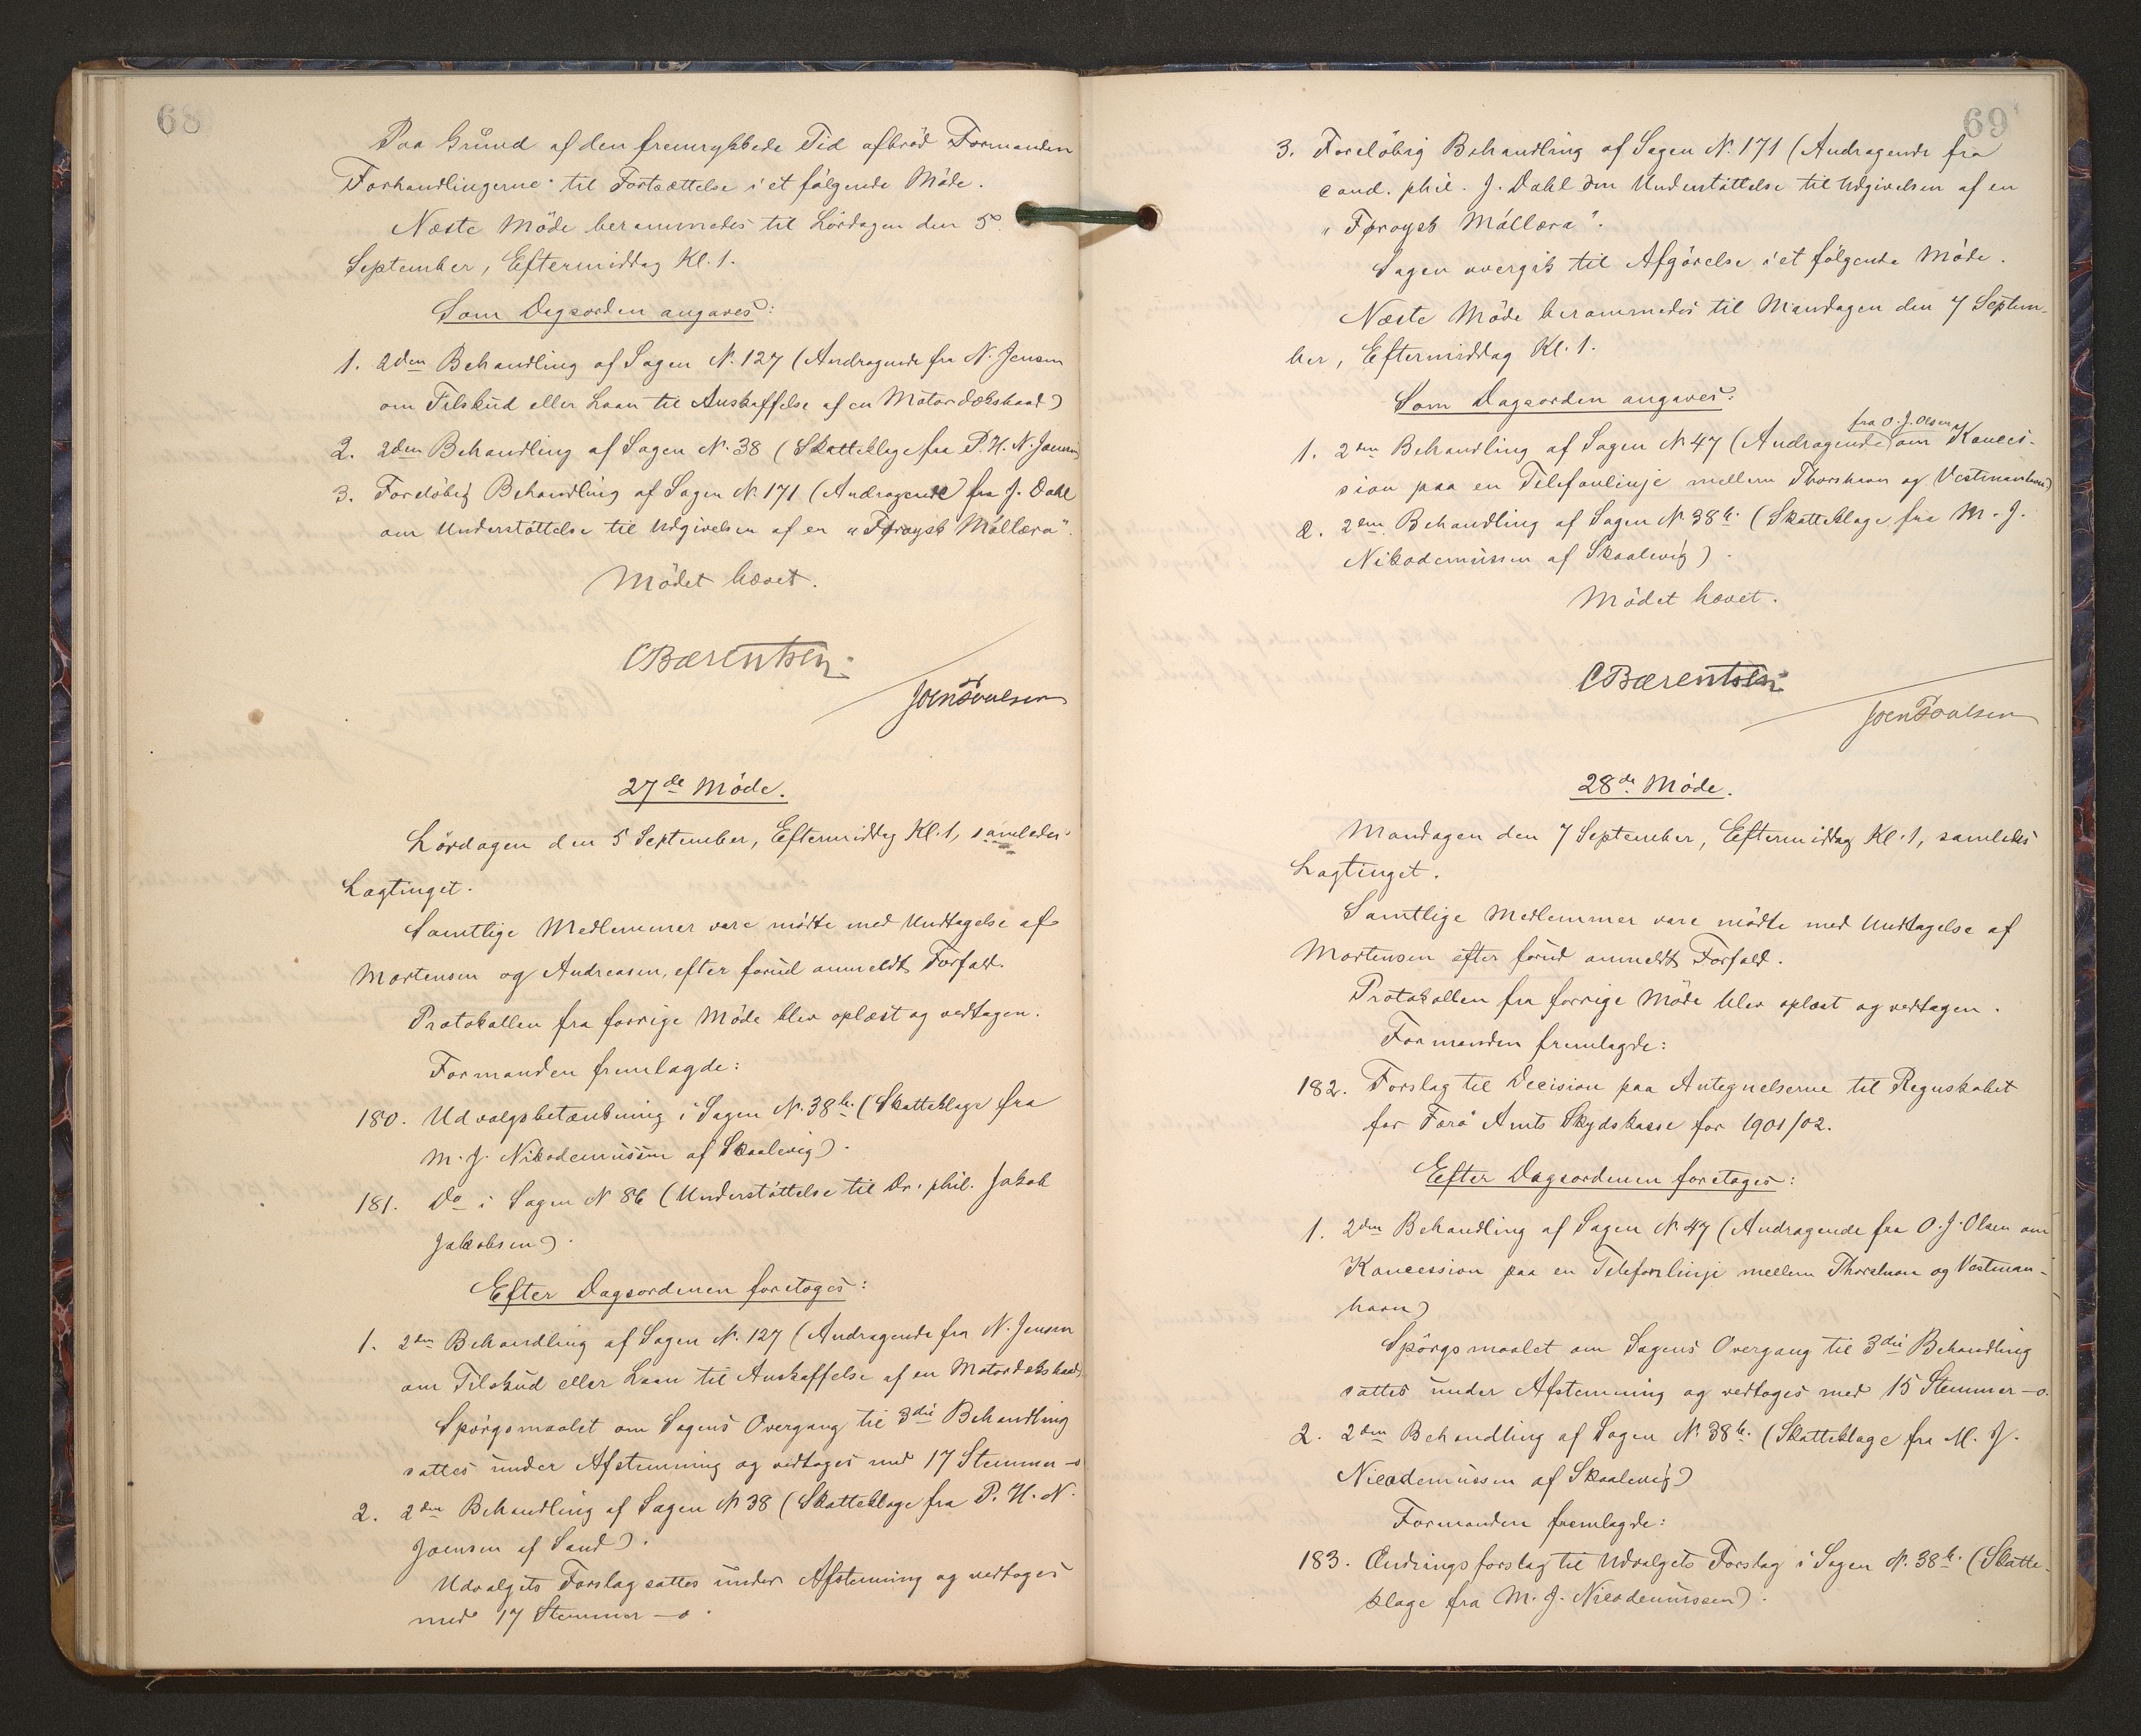 68
Paa Grund af den fremrykkede Tid afbrød Formanden
Forhandlingerne til Fortsættelse i et følgende Møde.
Næste Møde berammedes til Lørdagen den 5
September, Eftermiddag Kl. 1.
Som Dagsorden angaves:
1. 2den Behandling af Sagen N. 127 (Andragende fra N. Jensen
om Tilskud eller Laan til Anskaffelse af en Motordæksbaad)
2. 2den Behandling af Sagen N. 38 (Skatteklage fra P. H. N. Joensen)
3. Foreløbig Behandling af Sagen N. 171 (Andragende fra J. Dahl
om Understøttelse til Udgivelsen af en "Føroysk Mállæra".
Mødet hævet.
CBærentsen.
Joen Poulsen
27de Møde.
Lørdagen den 5 September, Eftermiddag Kl. 1, samledes
Lagtinget.
Samtlige Medlemmer vare mødte med Undtagelse af
Mortensen og Andreasen, efter forud anmeldt Forfald.
Protokollen fra forrige Møde blev oplæst og vedtagen.
Formanden fremlagde:
180. Udvalgsbetænkning i Sagen N. 38b. (Skatteklage fra
M. J. Nikodemussen af Skaalevig).
181. Do i Sagen N 86 (Understøttelse til Dr. phil. Jakob
Jakobsen).
Efter Dagsordenen foretoges:
1. 2den Behandling af Sagen N. 127 (Andragende fra N. Jensen
om Tilskud eller Laan til Anskaffelse af en Motordæksbaad)
Spørgsmaalet om Sagens Overgang til 3die Behandling
sattes under Afstemning og vedtoges med 17 Stemmer – o
2. 2den Behandling af Sagen N 38 (Skatteklage fra P. H. N.
Joensen af Sand).
Udvalgets Forslag sattes under Afstemning og vedtoges
med 17 Stemmer – o.
69
3. Foreløbig Behandling af Sagen N. 171 (Andragende fra
cand. phil. J. Dahl om Understøttelse til Udgivelsen af en
"Føroysk Mállæra".
Sagen overgik til Afgørelse i et følgende Møde.
Næste Møde berammedes til Mandagen den 7 Septem-
ber, Eftermiddag Kl. 1.
Som Dagsorden angaves:
1. 2den Behandling af Sagen N 47 (Andragende fra O. J. Olsen om Konces-
sion paa en Telefonlinje mellem Thorshavn og Vestmanhavn)
2. 2den Behandling af Sagen N 38b. (Skatteklage fra M. J.
Nikodemussen af Skaalevig).
Mødet hævet.
CBærentsen
Joen Poulsen
28de Møde.
Mandagen den 7 September, Eftermiddag Kl. 1, samledes
Lagtinget.
Samtlige Medlemmer vare mødte med Undtagelse af
Mortensen efter forud anmeldt Forfald.
Protokollen fra forrige Møde blev oplæst og vedtagen.
Formanden fremlagde:
182. Forslag til Decision paa Antegnelserne til Regnskabet
for Færø Amts Skydskasse for 1901/02.
Efter Dagsordenen foretoges:
1. 2den Behandling af Sagen N. 47 (Andragende fra O. J. Olsen om
Koncession paa en Telefonlinje mellem Thorshavn og Vestman-
havn)
Spørgsmaalet om Sagens Overgang til 3die Behandling
sattes under Afstemning og vedtoges med 15 Stemmer – o.
2. 2den Behandling af Sagen N. 38b. (Skatteklage fra M. J.
Nicodemussen af Skaalevig)
Formanden fremlagde:
183. Ændringsforslag til Udvalgets Forslag i Sagen N. 38b. (Skatte-
klage fra M. J. Nicodemussen).